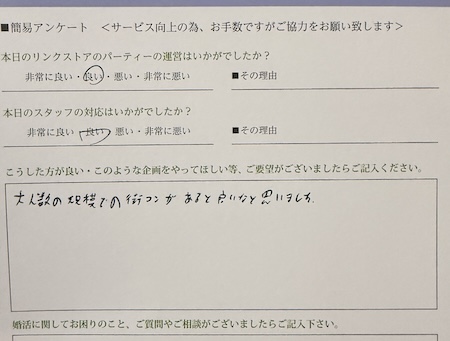 ■簡易アンケート ＜サービス向上の為、お手数ですがご協力をお願い致します＞
本日のリンクストアのパーティーの運営はいかがでしたか？
非常に良い・良い・悪い・非常に悪い ■その理由
本日のスタッフの対応はいかがでしたか？
非常に良い・良い・悪い・非常に悪い ■その理由
こうした方が良い・このような企画をやってほしい等、ご要望がございましたらご記入ください。
大人数の規模での街コンがあると良いなと思いました。
婚活に関してお困りのこと、ご質問やご相談がございましたらご記入下さい。